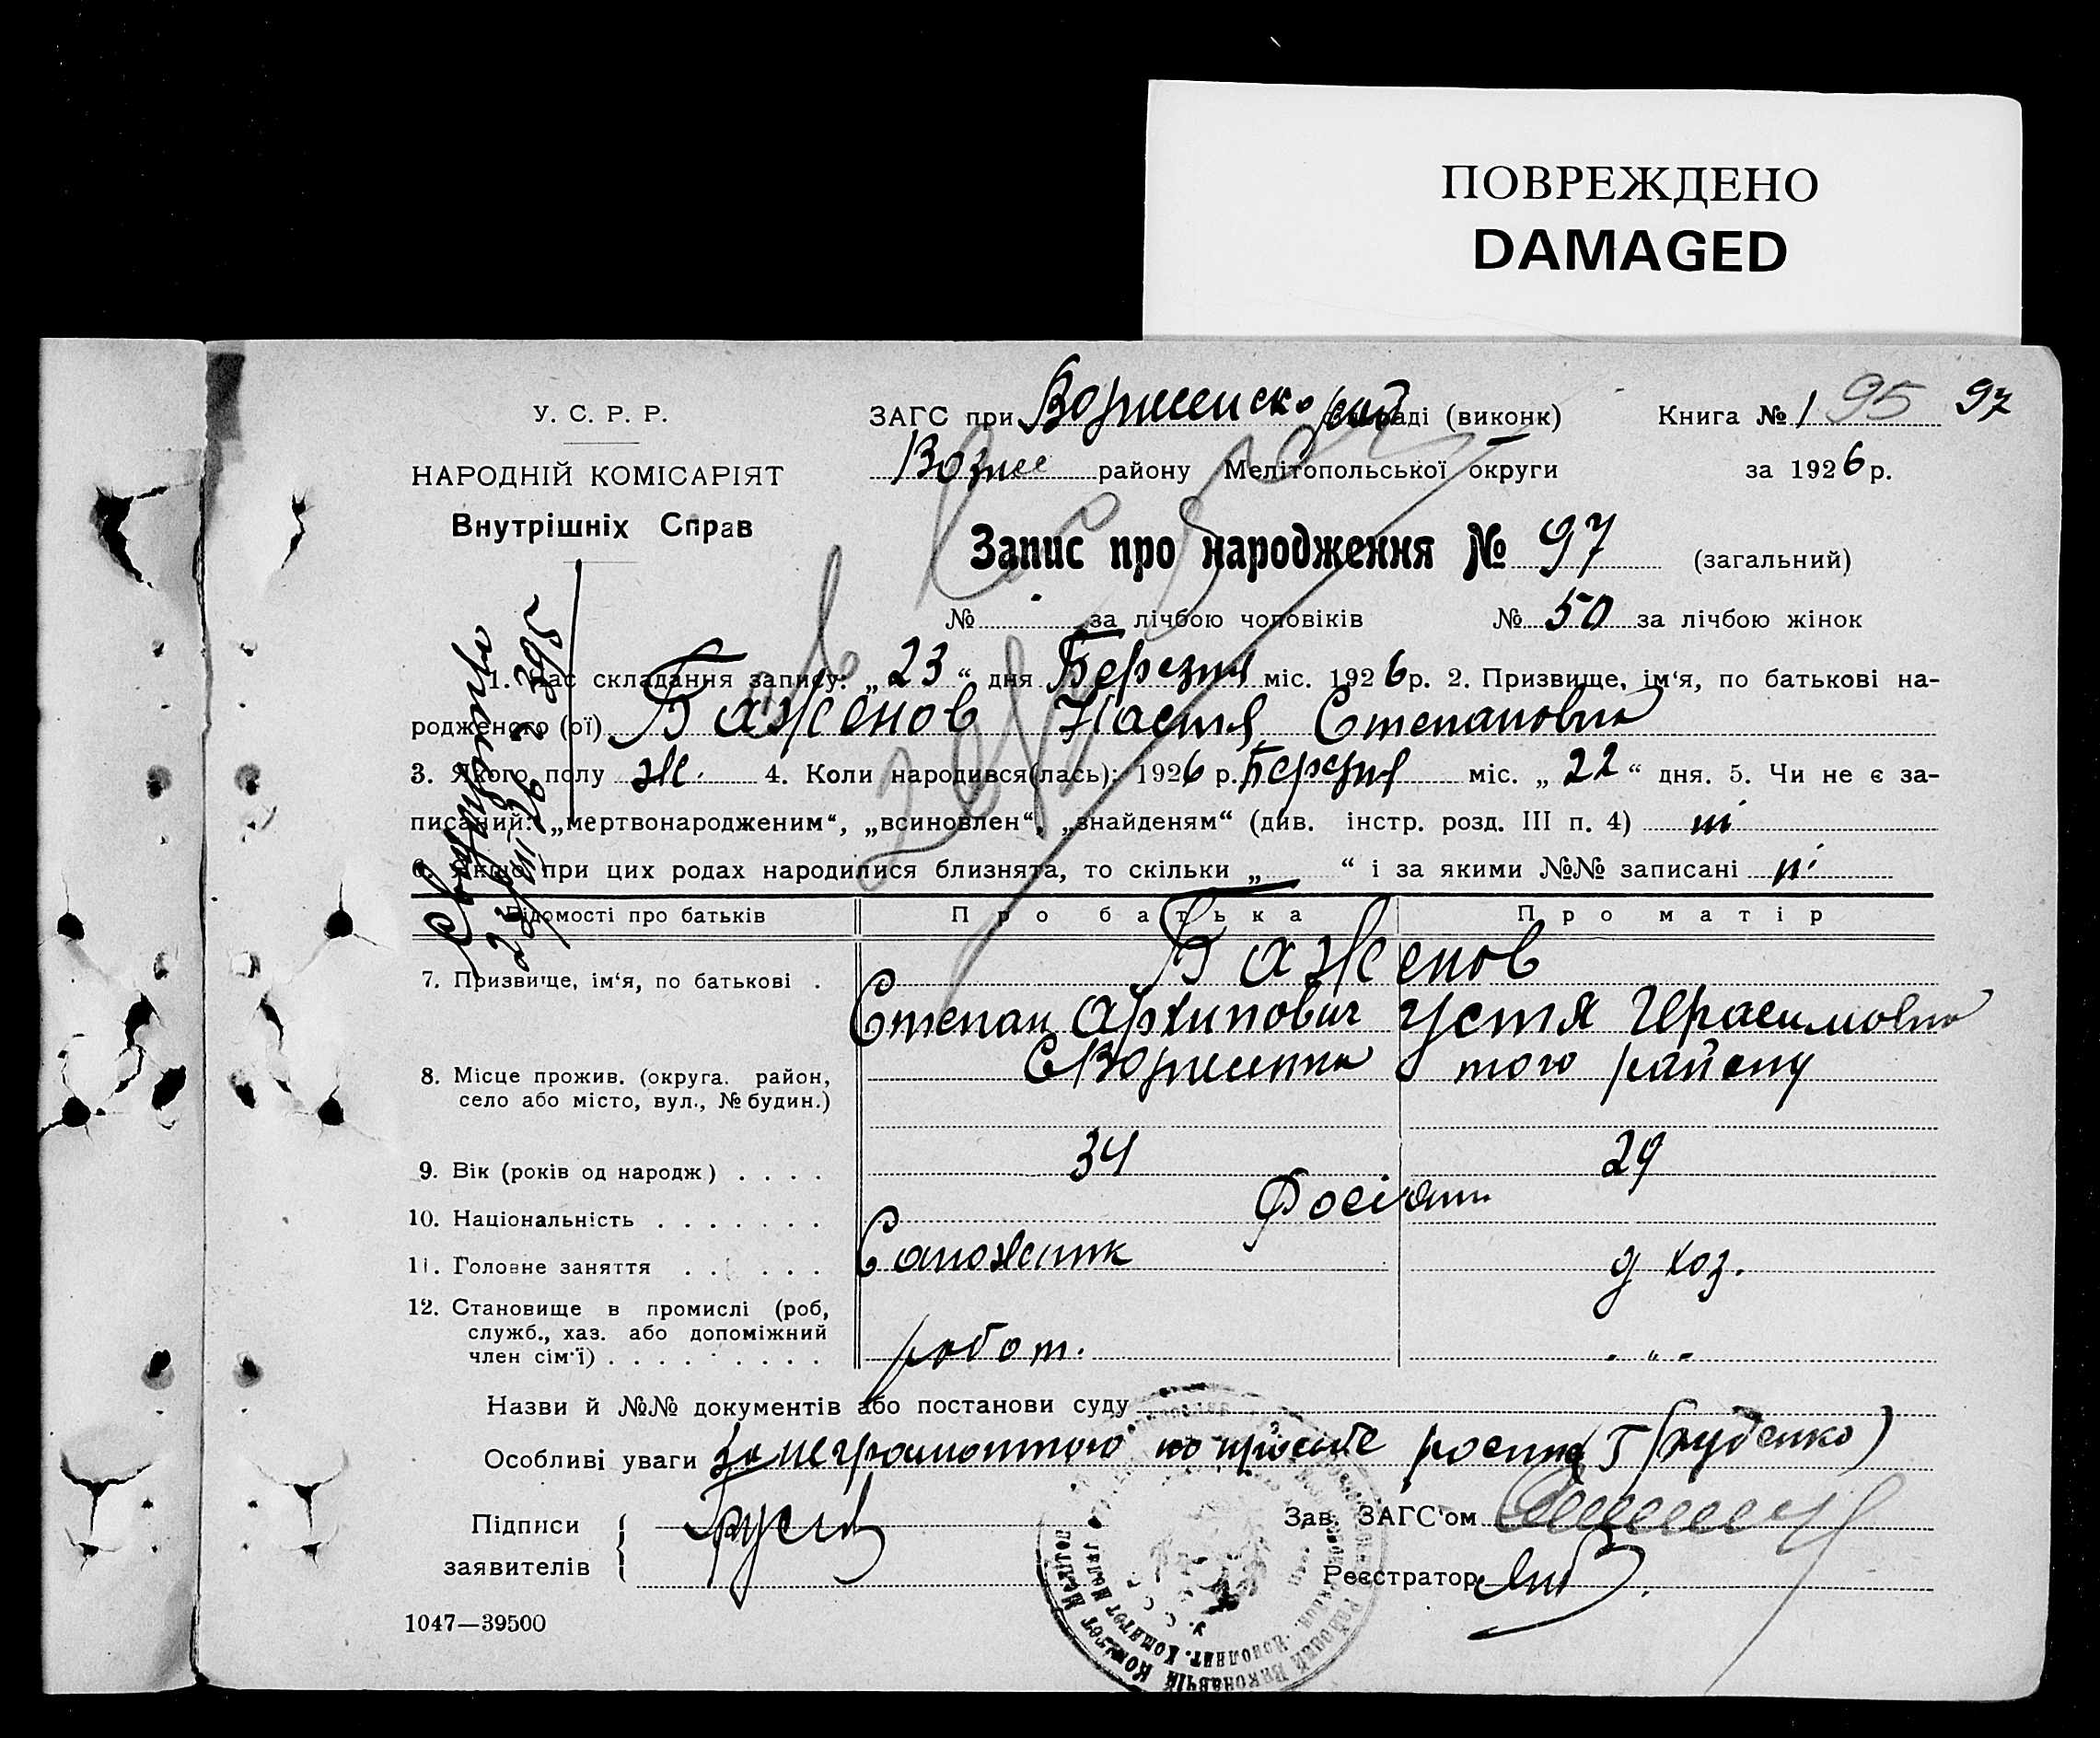 ПОВРЕЖДЕНО
DAMAGED
У. С. Р. Р.
НАРОДНІЙ КОМІСАРІЯТ
Внутрішніх Справ
ЗАГС при раді (виконк) Книга № 1 95 97
району Мелітопольської округи за 1926 р.
Запис про народження № 97 (загальний)
№ за лічбою чоловіків № 50 за лічбою жінок
1. Час складання запису: „ 23 “ дня Березня міс. 1926 р. 2. Призвище, ім‘я, по батькові на-
родженого (ої) Баженов Настя Степановна
3. Якого полу ж. 4. Коли народився(лась): 1926 р. Березня міс. „ 22 “ дня. 5. Чи не є за-
писаний: „мертвонародженим“, „всиновлен“, „знайденям“ (див. інстр. розд. III п. 4) ні
6. Якщо при цих родах народилися близнята, то скільки „ — “ і за якими №№ записані ні
Відомості про батьків Про батька Про матір
Баженов
7. Призвище, ім‘я, по батькові .
Степан Архипович Устя Герасимовна
8. Місце прожив. (округа. район,
село або місто, вул., № будин.)
того району
9. Вік (років од народж) . . . . 34 29
10. Національність . . . . . . .
11. Головне заняття . . . . . . Сапожник д хоз.
12. Становище в промислі (роб,
служб., хаз. або допоміжний
член сім‘ї) . . . . . . . . . робот. - „ -
Назви й №№ документів або постанови суду
Особливі уваги За неграмотною по просьбе
Підписи
заявителів
Зав. ЗАГС‘ом
Реєстратор
1047—39500